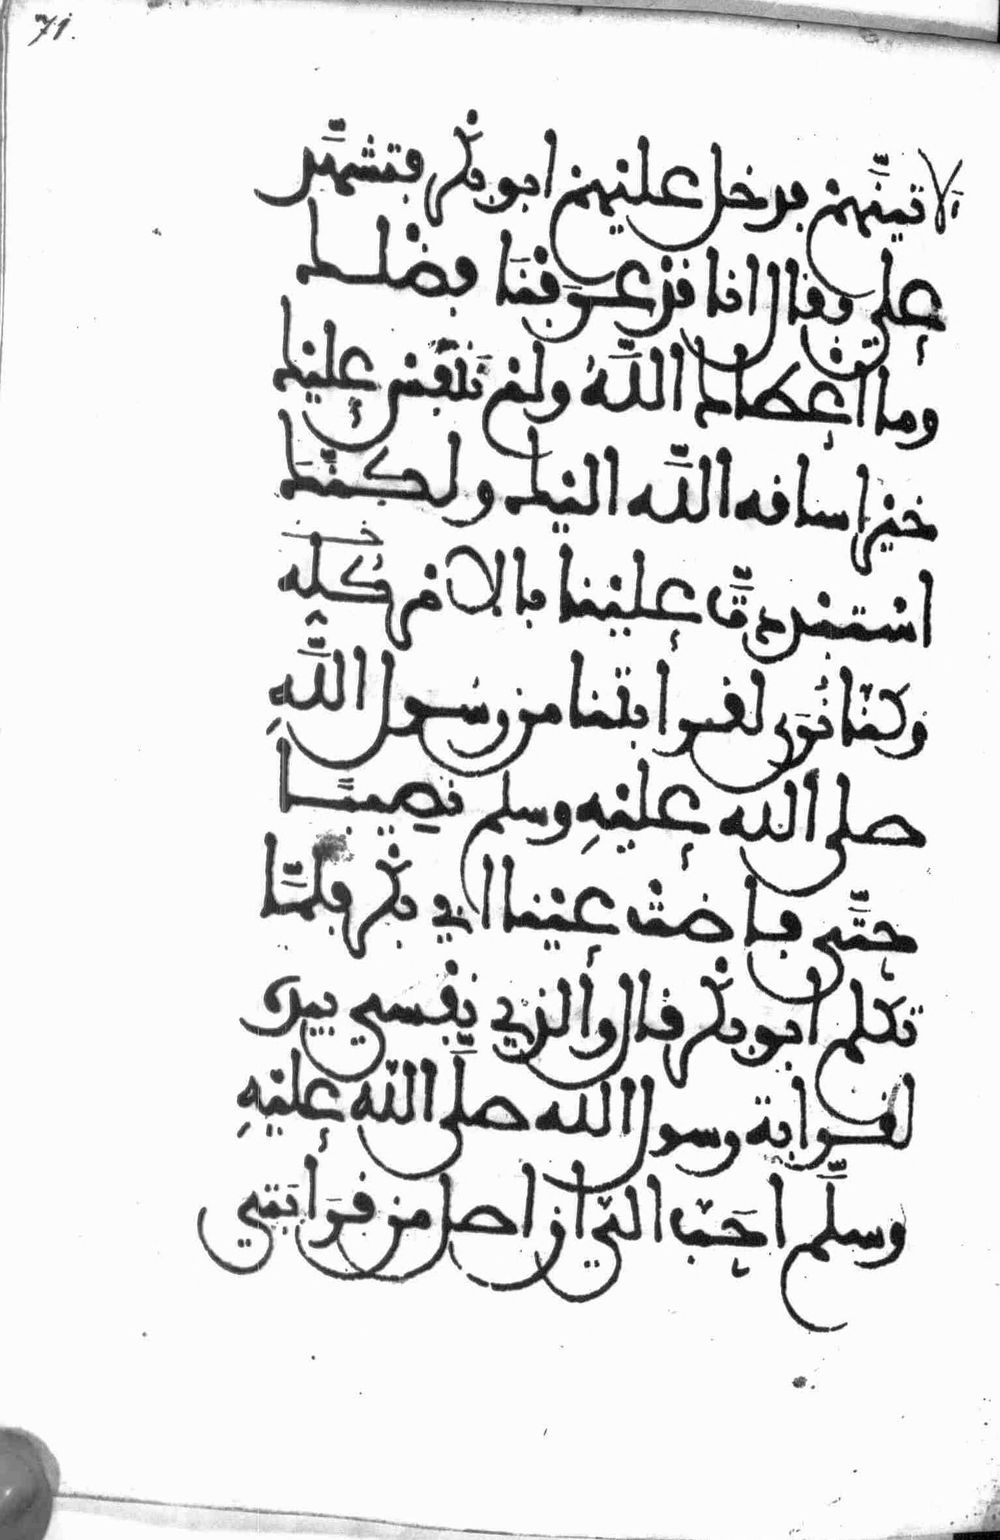 71.
لاتينهم فدخل عليهم ابو بكر فتشهد
علي فقال انا قد عرفنا فضلك
وما اعطاك الله ولم ننفس عليك
خيرا ساقه الله اليك ولكنك
استبددت علينا بالامر كله
وكنا نرى لقرابتنا من رسول الله
صلى الله عليه وسلم نصيبا
حتى فاضت عينا ابي بكر فلما
تكلم ابو بكر قال والذي نفسي بيده
لقرابة رسول الله صلى الله عليه
وسلم احب الي ان اصل من قرابتي